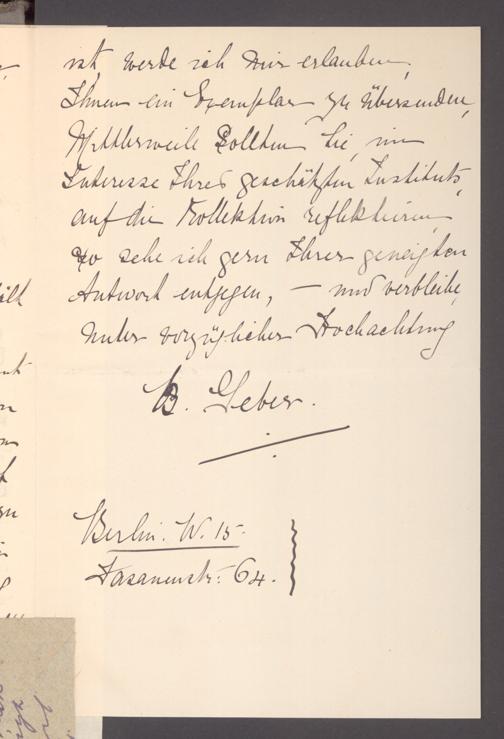 ist, werde ich mir erlauben,
Ihnen ein Exemplar zu übersenden,
Mittlerweile sollten Sie, im
Interesse Ihres geschätzten Instituts,
auf die Kollektion reflektieren,
so sehe ich gern Ihrer geneigten
Antwort entgegen, — und verbleibe,
unter vorzüglicher Hochachtung
B. Geber.
Berlin. W. 15.
Fasanenstr. 64.